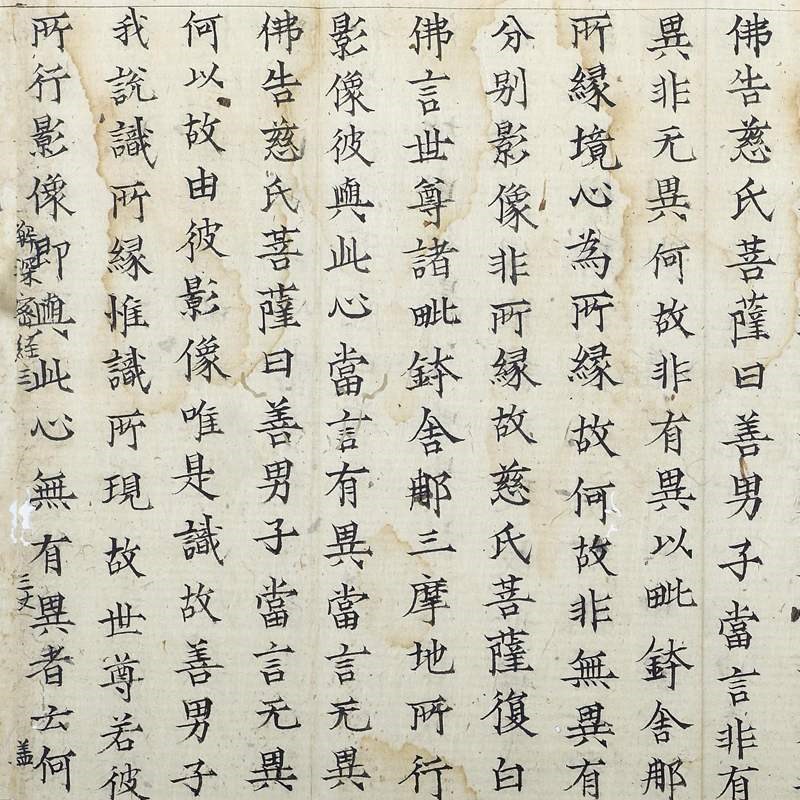 佛告慈氏菩薩曰善男子當言非有
異非无異何故非有異以毗鉢舍那
所縁境心為所縁故何故非無異有
分別影像非所縁故慈氏菩薩復白
佛言世尊諸毗鉢舍那三摩地所行
影像彼與此心當言有異當言无異
佛告慈氏菩薩曰善男子當言无異
何以故由彼影像唯是識故善男子
我說識所縁惟識所現故世尊若彼
所行影像即與此心無有異者云何
解深密經三 三丈 盖